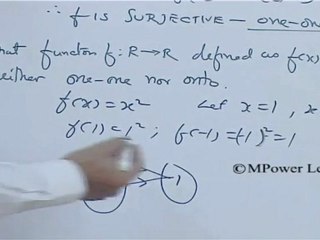 ∴ f is SURJECTIVE – one-one
that function f: R→R defined as f(x)
neither one-one nor onto.
f(x) = x² Let x = 1, x
f(1) = 1² ; f(-1) = (-1)² = 1
1
©MPower Le